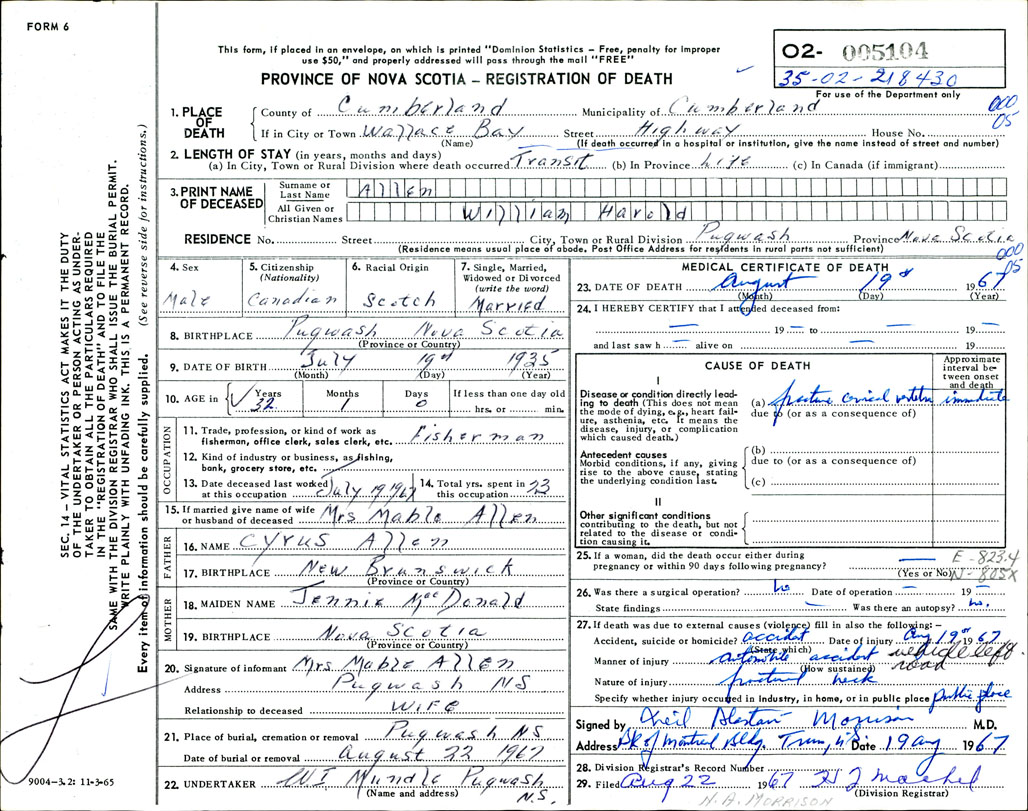 FORM 6
This form, if placed in an envelope, on which is printed "Dominion Statistics – Free, penalty for improper
use $50," and properly addressed will pass through the mail "FREE"
PROVINCE OF NOVA SCOTIA – REGISTRATION OF DEATH
02- 005104
35-02-218430
For use of the Department only
000
05
1. PLACE OF DEATH County of Cumberland Municipality of Cumberland
If in City or Town Wallace Bay Street Highway House No.
(Name) (If death occurred in a hospital or institution, give the name instead of street and number)
2. LENGTH OF STAY (in years, months and days)
(a) In City, Town or Rural Division where death occurred Transit (b) In Province Life (c) In Canada (if immigrant)
3. PRINT NAME OF DECEASED Surname or Last Name Allen
All Given or Christian Names William Harold
RESIDENCE No. Street City, Town or Rural Division Pugwash Province Nova Scotia
(Residence means usual place of abode. Post Office Address for residents in rural parts not sufficient)
000
05
4. Sex Male
5. Citizenship (Nationality) Canadian
6. Racial Origin Scotch
7. Single, Married, Widowed or Divorced (write the word) Married
8. BIRTHPLACE Pugwash Nova Scotia
(Province or Country)
9. DATE OF BIRTH July 19th 1935
(Month) (Day) (Year)
10. AGE in Years 32 Months 1 Days 0 If less than one day old hrs. or min.
OCCUPATION
11. Trade, profession, or kind of work as fisherman, office clerk, sales clerk, etc. Fisherman
12. Kind of industry or business, as fishing, bank, grocery store, etc.
13. Date deceased last worked at this occupation July 19 1967 14. Total yrs. spent in this occupation 23
15. If married give name of wife or husband of deceased Mrs Mable Allen
FATHER
16. NAME Cyrus Allen
17. BIRTHPLACE New Brunswick
(Province or Country)
MOTHER
18. MAIDEN NAME Jennie MacDonald
19. BIRTHPLACE Nova Scotia
(Province or Country)
20. Signature of informant Mrs Mable Allen
Address Pugwash NS
Relationship to deceased Wife
21. Place of burial, cremation or removal Pugwash NS
Date of burial or removal August 22 1967
22. UNDERTAKER WI Mundle Pugwash N.S.
(Name and address)
MEDICAL CERTIFICATE OF DEATH
23. DATE OF DEATH August 19th 1967
(Month) (Day) (Year)
24. I HEREBY CERTIFY that I attended deceased from:
— 19 — to — 19 —
and last saw h — alive on — 19
CAUSE OF DEATH
Approximate interval between onset and death
I
Disease or condition directly leading to death (This does not mean the mode of dying, e.g., heart failure, asthenia, etc. It means the disease, injury, or complication which caused death.)
(a) fracture cervical vertebra immediate
due to (or as a consequence of)
Antecedent causes
Morbid conditions, if any, giving rise to the above cause, stating the underlying condition last.
(b)
due to (or as a consequence of)
(c)
II
Other significant conditions contributing to the death, but not related to the disease or condition causing it.
25. If a woman, did the death occur either during pregnancy or within 90 days following pregnancy? —
(Yes or No)
E-823.4
N-805X
26. Was there a surgical operation? no Date of operation — 19 —
State findings — Was there an autopsy? no.
27. If death was due to external causes (violence) fill in also the following: –
Accident, suicide or homicide? accident Date of injury Aug 19th 1967
(State which)
Manner of injury automobile accident vehicle left road
(How sustained)
Nature of injury fractured neck
Specify whether injury occurred in industry, in home, or in public place public place
Signed by Neil Alastair Morrison M.D.
Address Bk of Montreal Bldg. Truro, NS Date 19 Aug 1967
28. Division Registrar's Record Number
29. Filed Aug 22 1967
(Division Registrar)
N.A. MORRISON
SEC. 14 – VITAL STATISTICS ACT MAKES IT THE DUTY
OF THE UNDERTAKER OR PERSON ACTING AS UNDER-
TAKER TO OBTAIN ALL THE PARTICULARS REQUIRED
IN THE "REGISTRATION OF DEATH" AND TO FILE THE
SAME WITH THE DIVISION REGISTRAR WHO SHALL ISSUE THE BURIAL PERMIT.
WRITE PLAINLY WITH UNFADING INK. THIS IS A PERMANENT RECORD.
Every item of information should be carefully supplied. (See reverse side for instructions.)
9004-3.2: 11-3-65